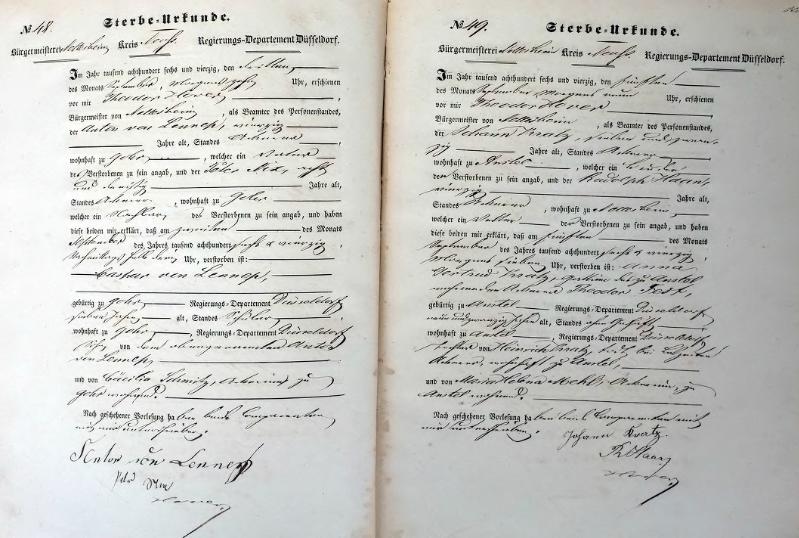 № 48.
Sterbe-Urkunde.
Bürgermeisterei Nettesheim Kreis Neuß. Regierungs-Departement Düsseldorf.
Im Jahr tausend achthundert sechs und vierzig, den dritten
des Monats September, Uhr, erschienen
vor mir Theodor Hover,
Bürgermeister von Nettesheim, als Beamter des Personenstandes,
der Anton von Lennep, vierzig
Jahre alt, Standes Ackerer
wohnhaft zu Gohr, welcher ein Vater
des Verstorbenen zu sein angab, und der Peter
und dreißig Jahre alt,
Standes Ackerer, wohnhaft zu Gohr
welcher ein Nachbar, des Verstorbenen zu sein angab, und haben
diese beiden mir erklärt, daß am zweiten des Monats
September des Jahrs tausend achthundert sechs & vierzig,
Uhr, verstorben ist:
Caspar von Lennep,
gebürtig zu Gohr Regierungs-Departement Düsseldorf
sieben Jahre alt, Standes
wohnhaft zu Gohr, Regierungs-Departement Düsseldorf
Sohn von dem obengenannten Anton
von Lennep,
und von Cäcilia Schmitz, Ackerin zu
Gohr wohnend.
Nach geschehener Vorlesung haben beide Comparenten
mit mir unterschrieben.
Anton von Lennep
Peter
Hover
№ 49.
Sterbe-Urkunde.
Bürgermeisterei Nettesheim Kreis Neuß. Regierungs-Departement Düsseldorf.
Im Jahr tausend achthundert sechs und vierzig, den fünften
des Monats September Morgens neun Uhr, erschienen
vor mir Theodor Hover
Bürgermeister von Nettesheim, als Beamter des Personenstandes,
der Johann Kratz, sieben und zwan-
zig Jahre alt, Standes Ackerer
wohnhaft zu Anstel, welcher ein Bruder
der Verstorbenen zu sein angab, und der Rudolph Haan,
vierzig Jahre alt,
Standes, wohnhaft zu Nettesheim,
welcher ein der Verstorbenen zu sein angab, und haben
diese beiden mir erklärt, daß am fünften des Monats
September des Jahrs tausend achthundert sechs & vierzig,
Morgens sieben Uhr, verstorben ist: Anna
Gertrud Kratz, Gattin des zu Anstel
wohnenden Ackerer Theodor
gebürtig zu Anstel Regierungs-Departement Düsseldorf
neun und zwanzig Jahre alt, Standes ohne Geschäft
wohnhaft zu Anstel, Regierungs-Departement Düsseldorf
Tochter von Heinrich Kratz,
Ackerer, wohnhaft zu Anstel,
und von Maria Helena, Ackerin, zu
Anstel wohnend.
Nach geschehener Vorlesung haben beide Comparenten mit
mir unterschrieben.
Johann Kratz
Rd Haan
Hover